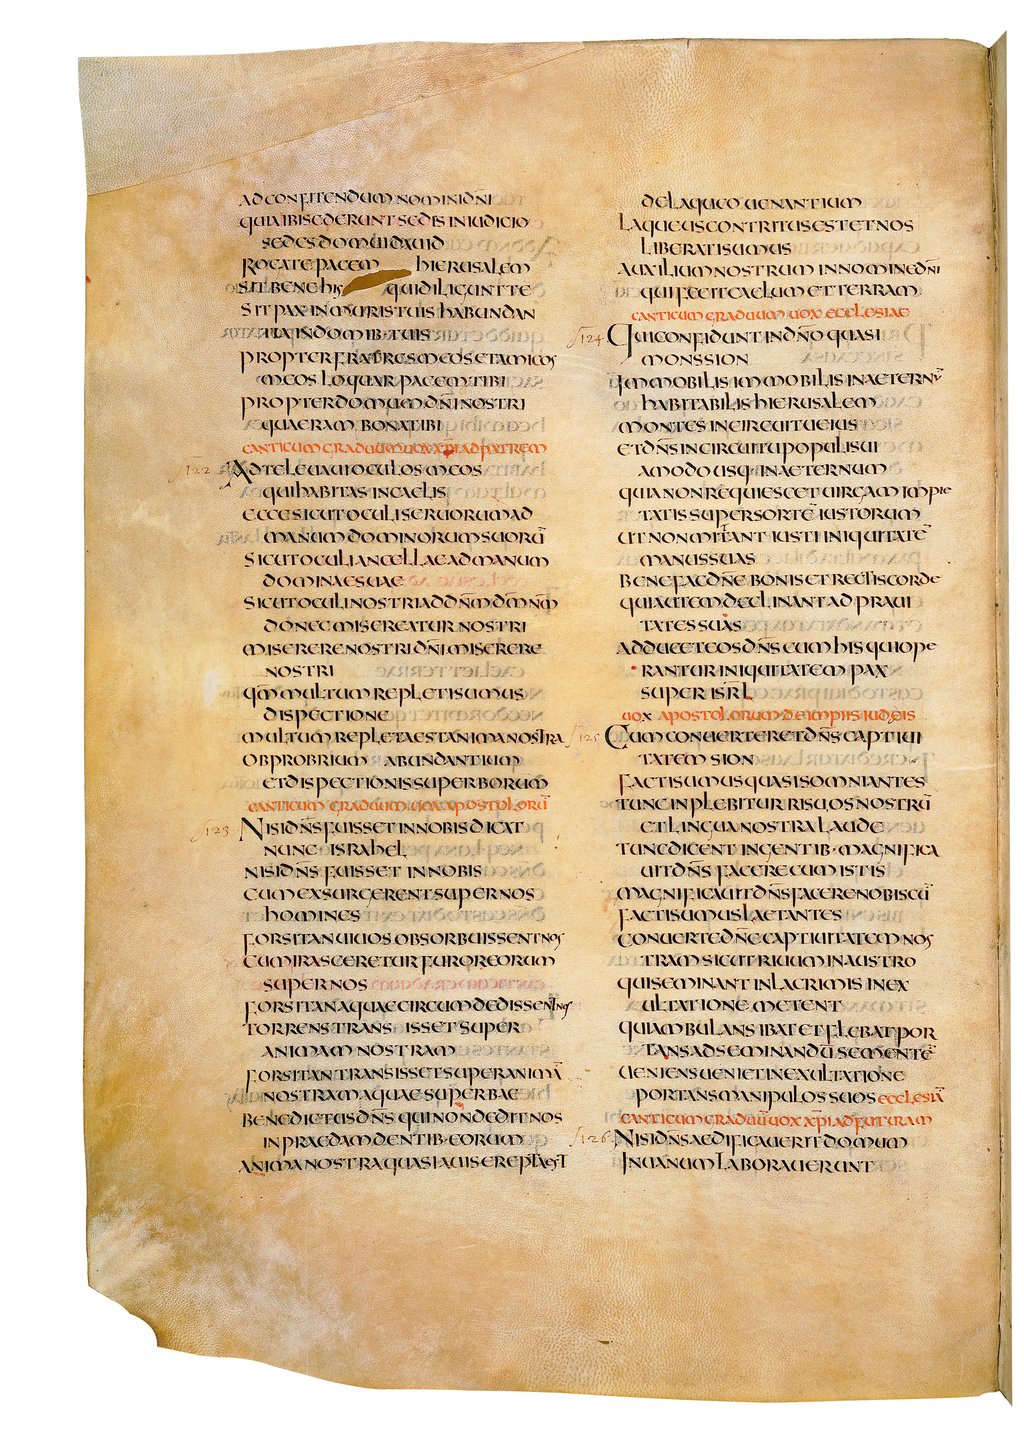 AD CONFITENDUM NOMINI DN̄I
QUIA IBI SEDERUNT SEDIS IN IUDICIO
SEDES DOMUI DAUID
ROGATE PACEM HIERUSALEM
SIT BENE HIS QUI DILIGUNT TE
SIT PAX IN MURIS TUIS HABUNDAN
TIA IN DOMIB· TUIS
PROPTER FRATRES MEOS ET AMICOS
MEOS LOQUAR PACEM TIBI
PROPTER DOMUM DN̄I NOSTRI
QUAERAM BONA TIBI
CANTICUM GRADUUM UOX XP̄I AD PATREM
122 AD TE LEUAUI OCULOS MEOS
QUI HABITAS IN CAELIS
ECCE SICUT OCULI SERUORUM AD
MANUM DOMINORUM SUORŪ
SICUT OCULI ANCELLAE AD MANUM
DOMINAE SUAE
SICUT OCULI NOSTRI AD DN̄M DM̄ NM̄
DONEC MISEREATUR NOSTRI
MISERERE NOSTRI DN̄I MISERERE
NOSTRI
QM̄ MULTUM REPLETI SUMUS
DISPECTIONE
MULTUM REPLETA EST ANIMA NOSTRA
OBPROBRIUM ABUNDANTIUM
ET DISPECTIONIS SUPERBORUM
CANTICUM GRADUUM UOX APOSTOLORŪ
123 NISI DN̄S FUISSET IN NOBIS DICAT
NUNC ISRAHEL
NISI DN̄S FUISSET IN NOBIS
CUM EXSURGERENT SUPER NOS
HOMINES
FORSITAN UIUOS OBSORBUISSENT NOS
CUM IRASCERETUR FUROR EORUM
SUPER NOS
FORSITAN AQUAE CIRCUMDEDISSENT NOS
TORRENS TRANSISSET SUPER
ANIMAM NOSTRAM
FORSITAN TRANSISSET SUPER ANIMĀ
NOSTRAM AQUAE SUPERBAE
BENEDICTUS DN̄S QUI NON DEDIT NOS
IN PRAEDAM DENTIB· EORUM
ANIMA NOSTRA QUASI AUIS EREPTA EST
DE LAQUEO UENANTIUM
LAQUEUS CONTRITUS EST ET NOS
LIBERATI SUMUS
AUXILIUM NOSTRUM IN NOMINE DN̄I
QUI FECIT CAELUM ET TERRAM
CANTICUM GRADUUM UOX ECCLESIAE
124 QUI CONFIDUNT IN DN̄O QUASI
MONS SION
IMMOBILIS IMMOBILIS IN AETERNŪ
HABITABILIS HIERUSALEM
MONTES IN CIRCUITU EIUS
ET DN̄S IN CIRCUITU POPULI SUI
AMODO USQ· IN AETERNUM
QUIA NON REQUIESCET UIRGA IMPIE
TATIS SUPER SORTĒ IUSTORUM
UT NON MITTANT IUSTI INIQUITATĒ
MANUS SUAS
BENEFAC DN̄E BONIS ET RECTIS CORDE
QUI AUTEM DECLINANT AD PRAUI
TATES SUAS
ADDUCET EOS DN̄S CUM HIS QUI OPE
RANTUR INIQUITATEM PAX
SUPER ISRL̄
UOX APOSTOLORUM DE IMPIIS IUDEIS
125 CUM CONUERTERET DN̄S CAPTIUI
TATEM SION
FACTI SUMUS QUASI SOMNIANTES
TUNC INPLEBITUR RISU OS NOSTRŪ
ET LINGUA NOSTRA LAUDE
TUNC DICENT IN GENTIB· MAGNIFICA
UIT DN̄S FACERE CUM ISTIS
MAGNIFICAUIT DN̄S FACERE NOBISCŪ
FACTI SUMUS LAETANTES
CONUERTE DN̄E CAPTIUITATEM NOS
TRAM SICUT RIUUM IN AUSTRO
QUI SEMINANT IN LACRIMIS IN EX
ULTATIONE METENT
QUI AMBULANS IBAT ET FLEBAT POR
TANS AD SEMINANDŪ SEMENTĒ
UENIENS UENIET IN EXULTATIONE
PORTANS MANIPULOS SUOS ECCLESIĀ
CANTICUM GRADUŪ UOX XP̄I AD FUTURAM
126 NISI DN̄S AEDIFICAUERIT DOMUM
IN UANUM LABORAUERUNT